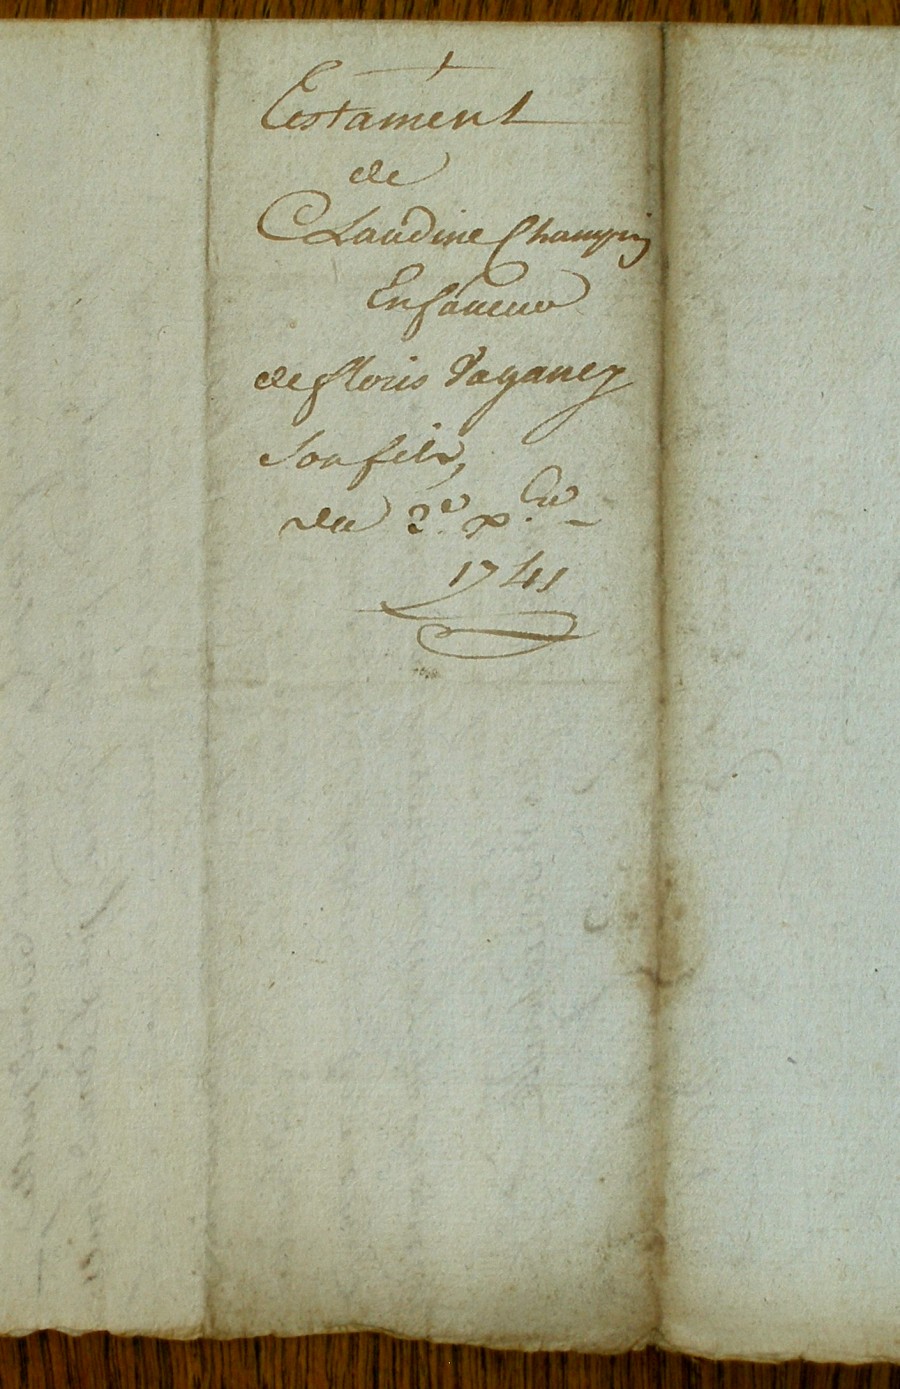 Testament
de
Claudine Champin
En faveur
de floris Paganey
Son fils,
du 2e. xbre
1741